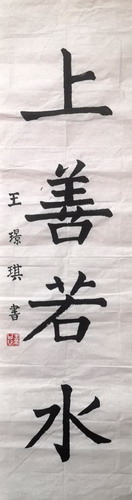 上善若水
王璟琪書